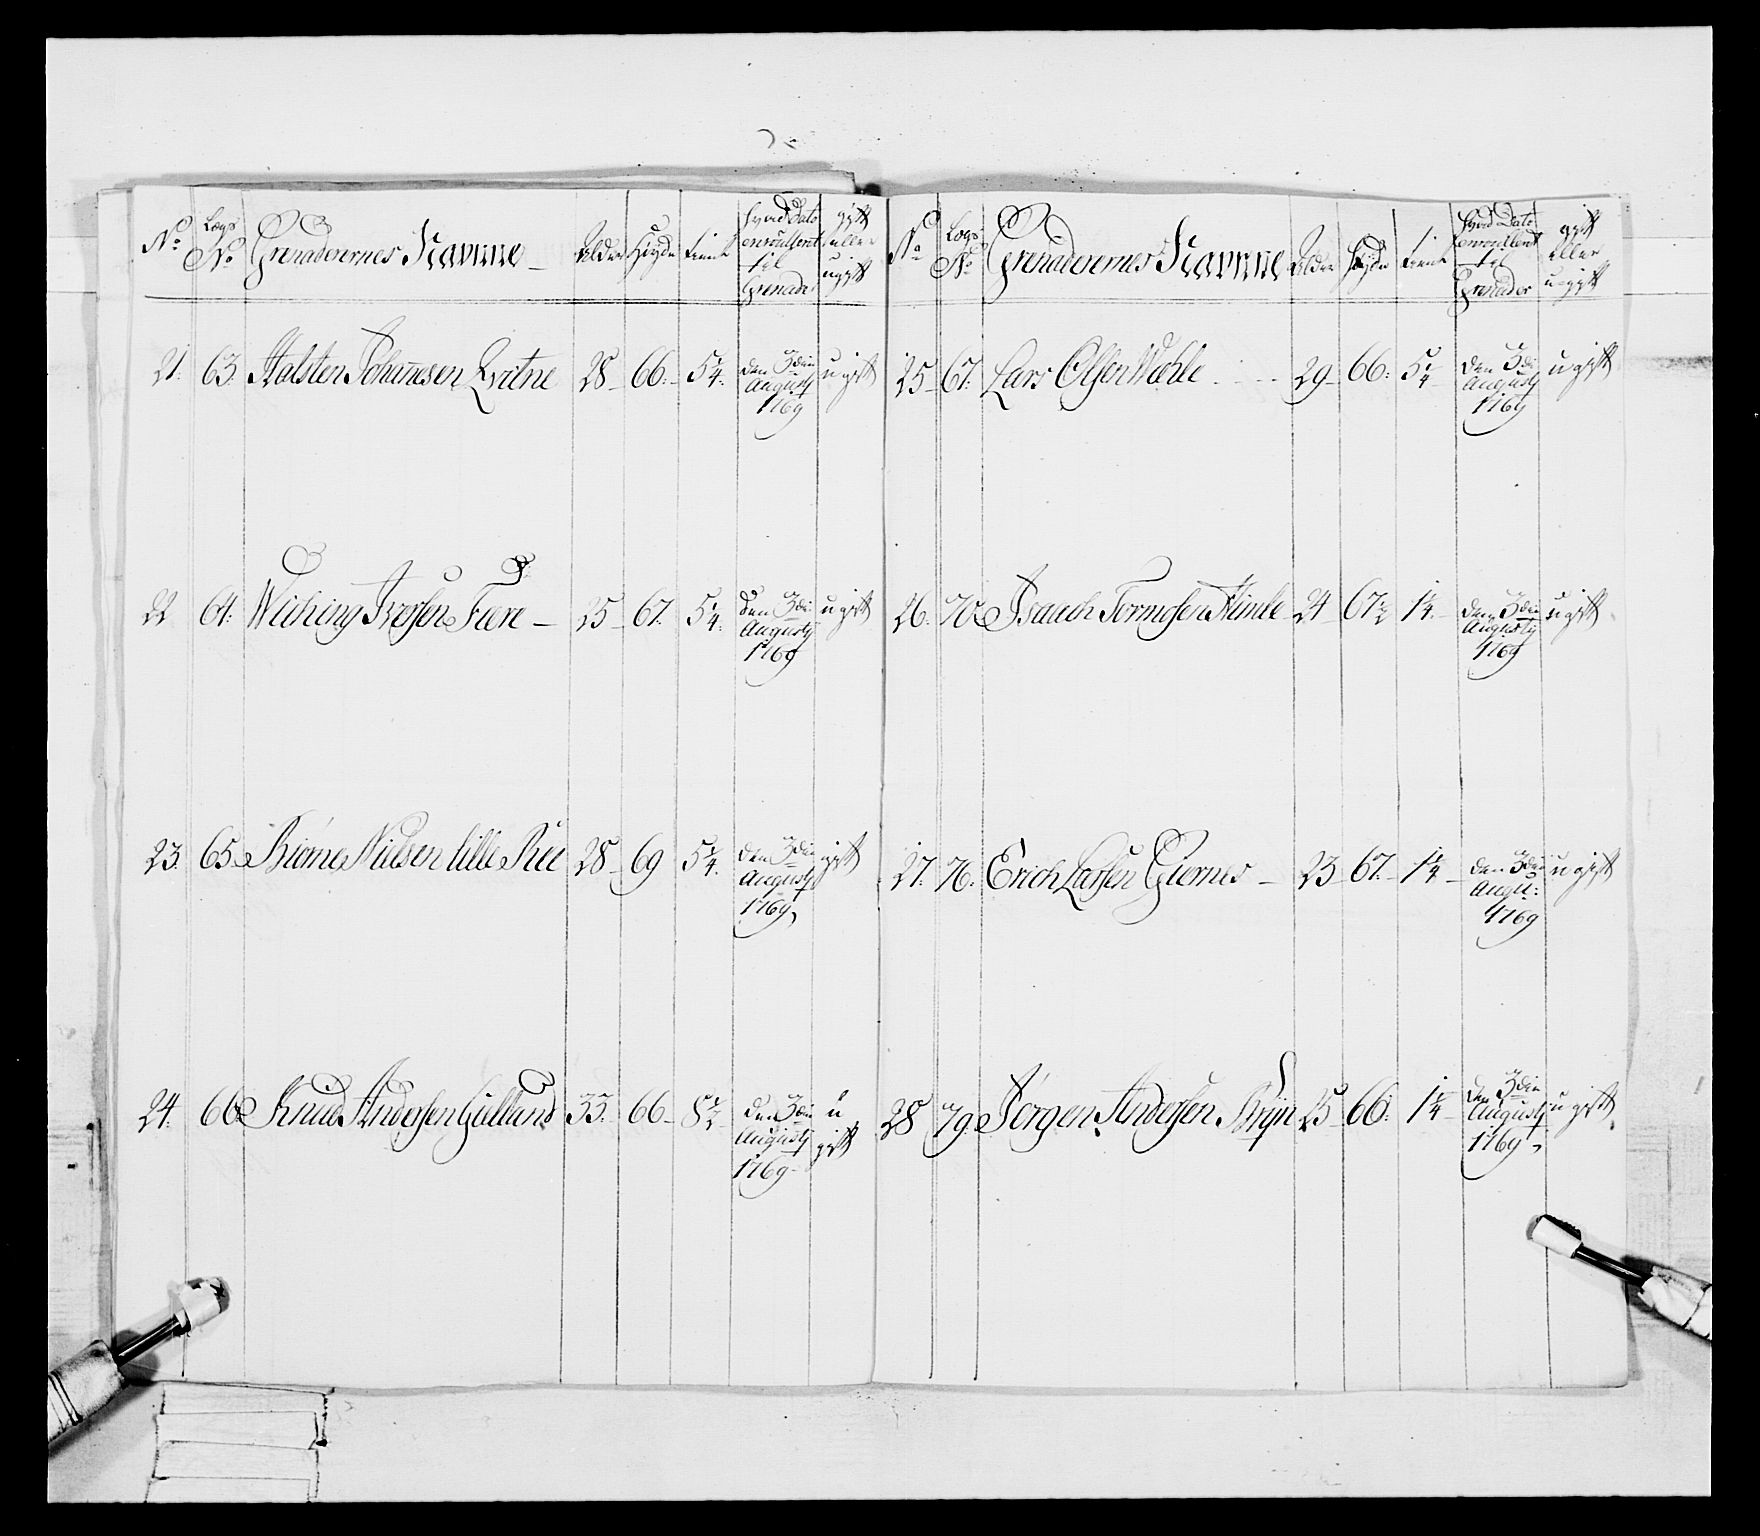 No Lægs No Grenaderernes Navne Alder Høyde tient hvad Dato enroullert til Grenader gift eller ugift
21. 63. Halsten Johannesen Qvitne 28 66. 5 1/4. den 3die Augusty 1769 ugift
22 64. Wiching Iversen Fære 25 67. 5 1/4. den 3die Augusty 1769 ugift
23. 65. Biørne Nielsen lille Ree 28 69 5 1/4. den 3die Augusty 1769 gift
24. 66 Knud Andersen Gielland 33. 66 8 1/2 den 3die Augusty 1769 u gift
No Lægs No Grenaderernes Navne Alder Høyde tient hvad Dato enroullert til Grenader gift eller ugift
25 67. Lars Olsen Wahle 29 66. 5 1/4 den 3die Augusty 1769 ugift
26. 70 Isaach Tormosen Himle 24 67 1/2 1 1/4. den 3die Augusty 1769 ugift
27. 76. Erich Larsen Giernes 23 67. 1 1/4 den 3die Augu: 1769 ugift
28 79. Jørgen Andersen Bryn 25 66. 1 1/4 den 3die Augusty 1769 ugift